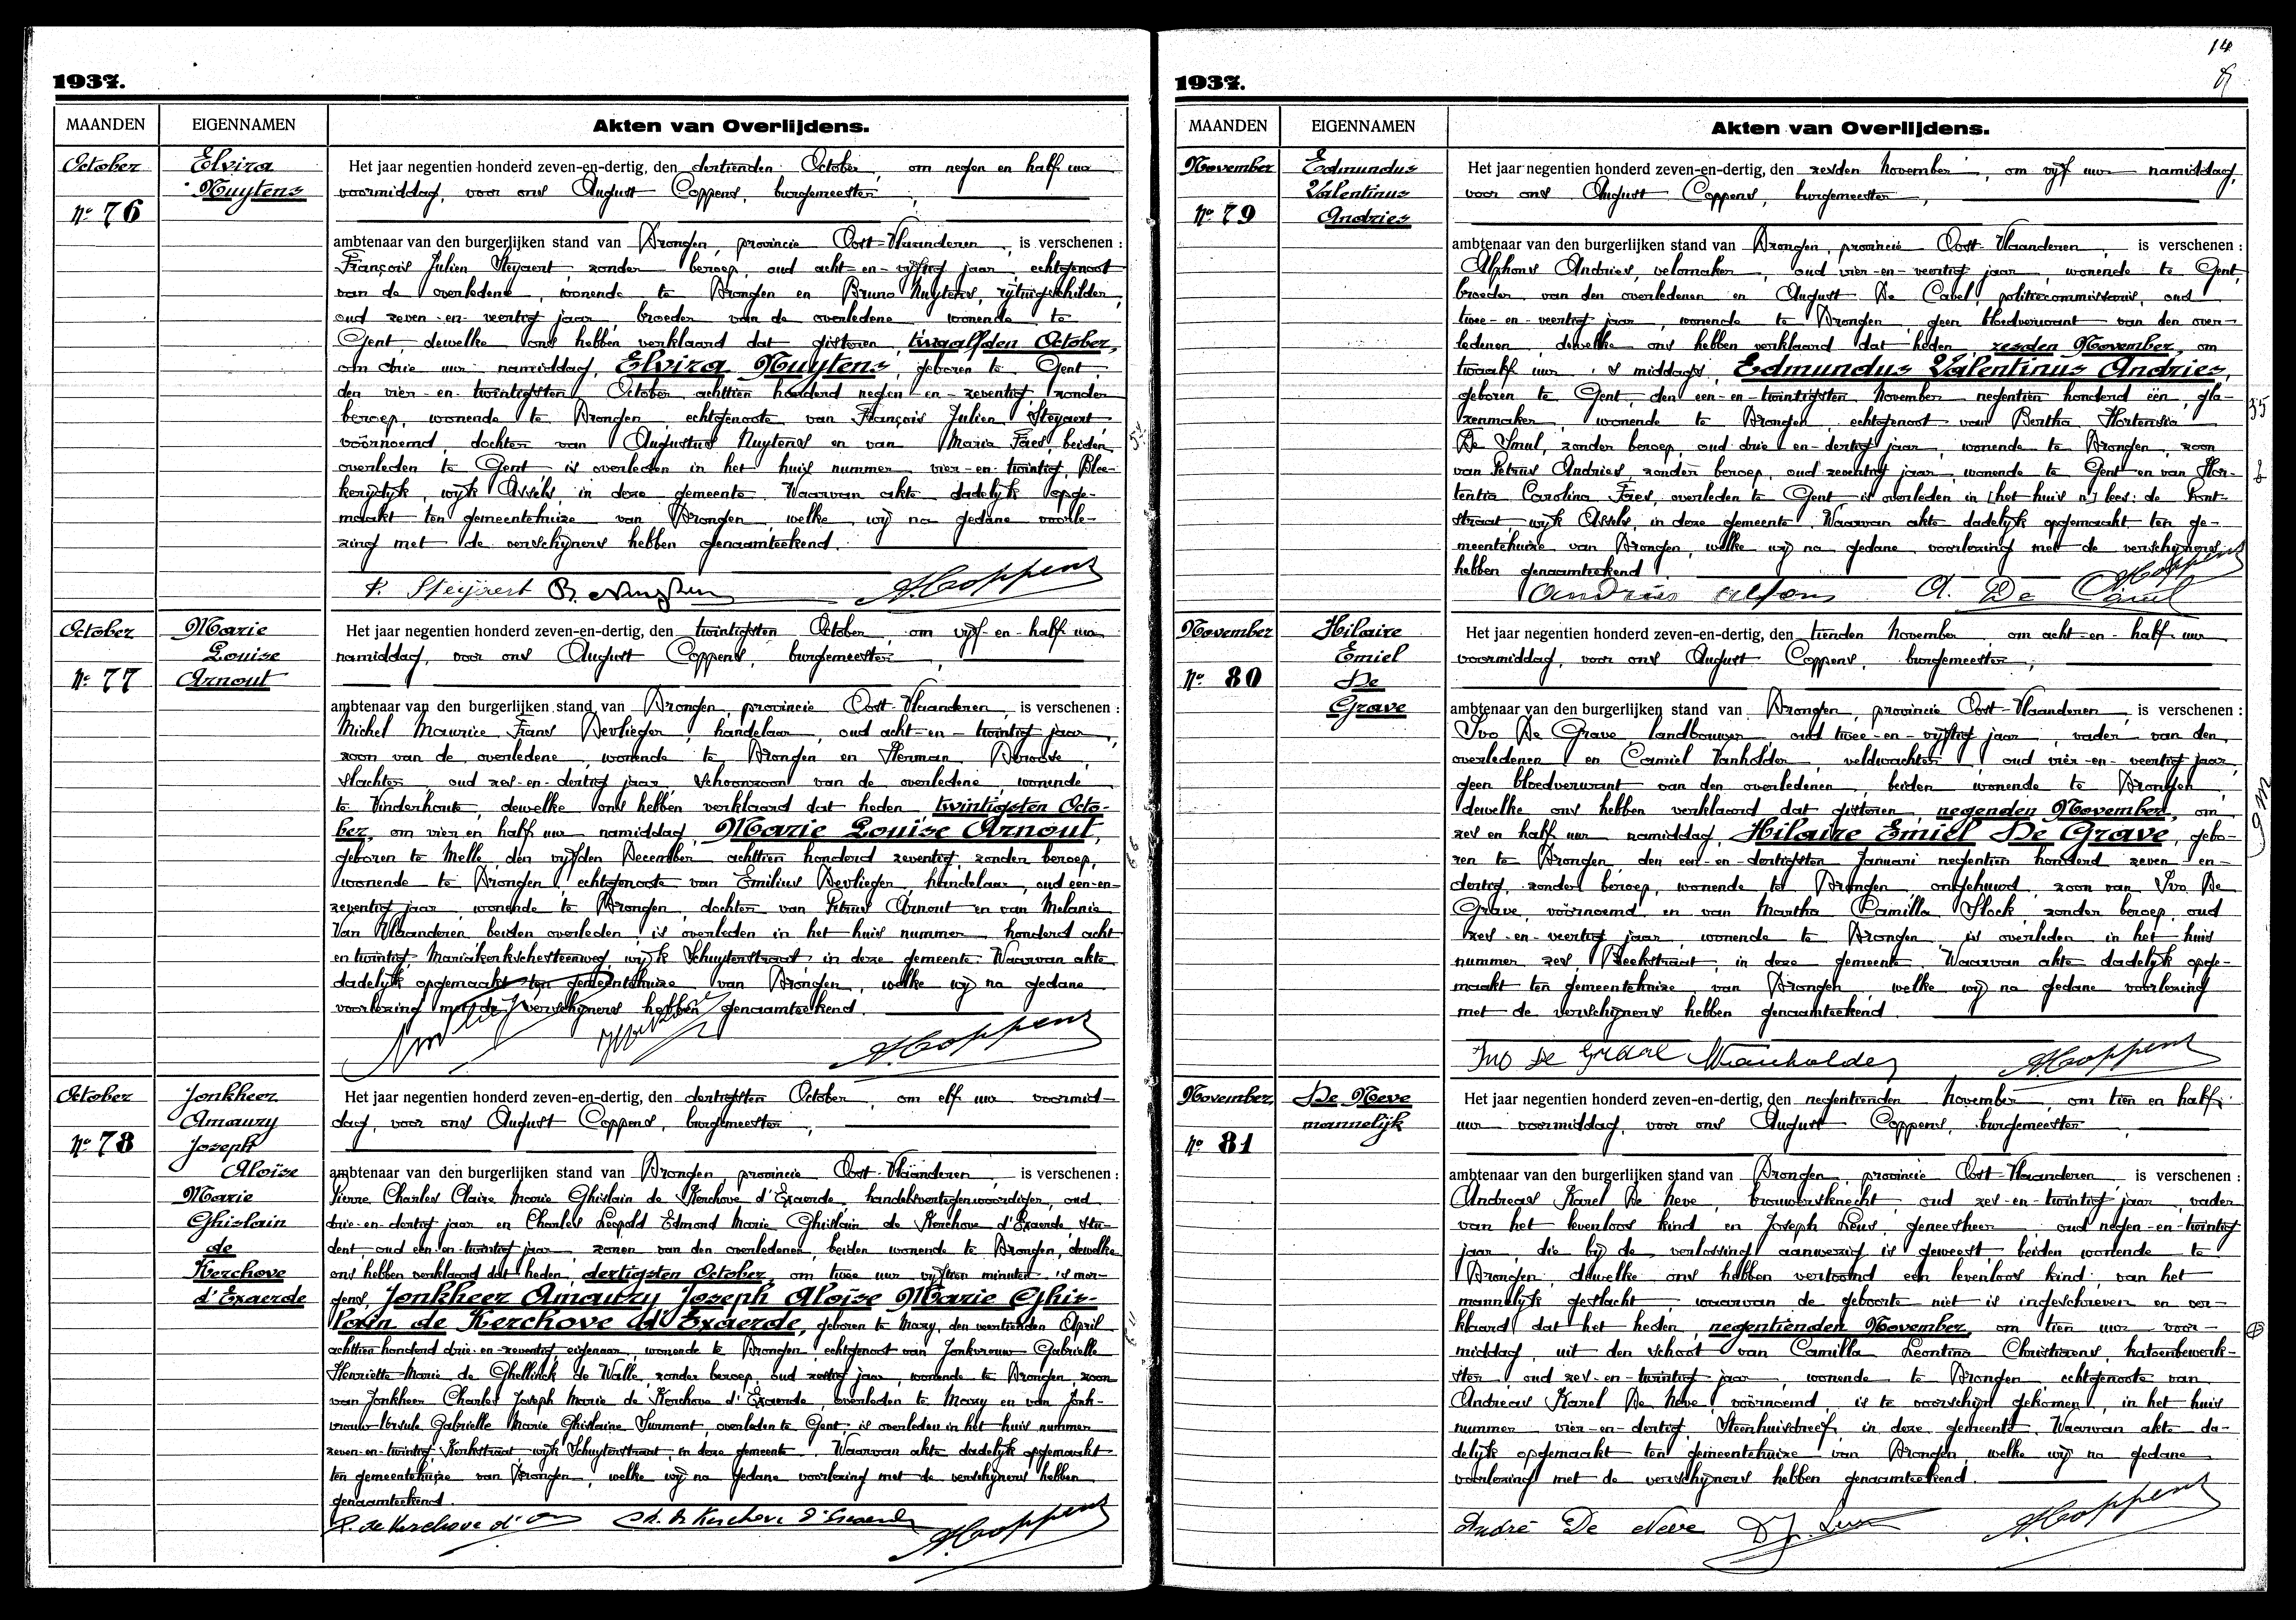 1937.
MAANDEN
EIGENNAMEN
Akten van Overlijdens.
October
Elvira
Nuytens
No 76
Het jaar negentien honderd zeven-en-dertig, den dertienden October, om negen en half uur
voormiddag, voor ons August Coppens, burgemeester,
ambtenaar van den burgerlijken stand van Drongen, provincie Oost-Vlaanderen, is verschenen :
François Julien Steyaert, zonder beroep, oud acht-en-vijftig jaar, echtgenoot
van de overledene, wonende te Drongen en Bruno Nuytens, rijtuigschilder,
oud zeven-en-veertig jaar, broeder van de overledene, wonende te
Gent, dewelke ons hebben verklaard dat gisteren, twaalfden October,
om drie uur namiddag, Elvira Nuytens, geboren te Gent,
den vier-en-twintigsten October achttien honderd negen-en-zeventig, zonder
beroep, wonende te Drongen, echtgenoote van François Julien Steyaert,
voornoemd, dochter van Augustus Nuytens en van Maria Faes, beiden
overleden te Gent is overleden in het huis nummer vier-en-twintig, Blee-
kerijdyk, wijk Assels, in deze gemeente. Waarvan akte dadelijk opge-
maakt ten gemeentehuize van Drongen, welke wij na gedane voorle-
zing met de verschijners hebben genaamteekend.
F. Steyaert B. Nuytens A. Coppens
October
Marie
Louise
Arnout
No 77
Het jaar negentien honderd zeven-en-dertig, den twintigsten October, om vijf-en-half uur
namiddag, voor ons August Coppens, burgemeester,
ambtenaar van den burgerlijken stand van Drongen, provincie Oost-Vlaanderen, is verschenen :
Michel Maurice Frans Devlieger, handelaar, oud acht-en-twintig jaar,
zoon van de overledene, wonende te Drongen en Herman Deroose,
slachter, oud zes-en-dertig jaar, schoonzoon van de overledene, wonende
te Vinderhoute, dewelke ons hebben verklaard dat heden, twintigsten Octo-
ber, om vier en half uur namiddag, Marie Louise Arnout,
geboren te Melle, den vijfden December achttien honderd zeventig, zonder beroep,
wonende te Drongen, echtgenoote van Emilius Devlieger, handelaar, oud een-en-
zeventig jaar, wonende te Drongen, dochter van Petrus Arnout en van Melanie
Van Vlaanderen, beiden overleden, is overleden in het huis nummer honderd acht
en twintig, Mariakerkschesteenweg, wijk Schuyterstraat, in deze gemeente. Waarvan akte
dadelijk opgemaakt ten gemeentehuize van Drongen, welke wij na gedane
voorlezing met de verschijners hebben genaamteekend.
A. Coppens
October
Jonkheer
Amaury
Joseph
Aloïse
Marie
Ghislain
de
Kerchove
d'Exaerde
No 78
Het jaar negentien honderd zeven-en-dertig, den dertigsten October, om elf uur voormid-
dag, voor ons August Coppens, burgemeester,
ambtenaar van den burgerlijken stand van Drongen, provincie Oost-Vlaanderen, is verschenen :
Pierre Charles Claire Marie Ghislain de Kerchove d'Exaerde, handelsvertegenwoordiger, oud
drie-en-dertig jaar en Charles Leopold Edmond Marie Ghislain de Kerchove d'Exaerde, stu-
dent, oud een-en-twintig jaar, zonen van den overledenen, beiden wonende te Drongen, dewelke
ons hebben verklaard dat heden, dertigsten October, om twee uur vijftien minuten 's mor-
gens, Jonkheer Amaury Joseph Aloïse Marie Ghis-
lain de Kerchove d'Exaerde, geboren te Mazy, den veertienden April
achttien honderd drie-en-zeventig, eigenaar, wonende te Drongen, echtgenoot van Jonkvrouw Gabrielle
Henriette Marie de Ghellinck de Walle, zonder beroep, oud zestig jaar, wonende te Drongen, zoon
van Jonkheer Charles Joseph Marie de Kerchove d'Exaerde, overleden te Mazy en van Jonk-
vrouw Ursule Gabrielle Marie Ghislaine Surmont, overleden te Gent, is overleden in het huis nummer
zeven-en-twintig, Kerkstraat, wijk Schuyterstraat, in deze gemeente. Waarvan akte dadelijk opgemaakt
ten gemeentehuize van Drongen, welke wij na gedane voorlezing met de verschijners hebben
genaamteekend.
P. de Kerchove d'Ex Ch. de Kerchove d'Exaerde A. Coppens
14
1937.
MAANDEN
EIGENNAMEN
Akten van Overlijdens.
November
Edmundus
Valentinus
Andries
No 79
Het jaar negentien honderd zeven-en-dertig, den zesden November, om vijf uur namiddag,
voor ons August Coppens, burgemeester,
ambtenaar van den burgerlijken stand van Drongen, provincie Oost-Vlaanderen, is verschenen :
Alphons Andries, velomaker, oud vier-en-veertig jaar, wonende te Gent,
broeder van den overledenen en August De Cavel, politiecommissaris, oud
twee-en-veertig jaar, wonende te Drongen, geen bloedverwant van den over-
ledenen, dewelke ons hebben verklaard dat heden, zesden November, om
twaalf uur 's middags, Edmundus Valentinus Andries,
geboren te Gent, den een-en-twintigsten November negentien honderd één, gla-
zenmaker, wonende te Drongen, echtgenoot van Bertha Hortensia
De Smul, zonder beroep, oud drie-en-dertig jaar, wonende te Drongen, zoon
van Petrus Andries, zonder beroep, oud zeventig jaar, wonende te Gent en van Hor-
tentia Carolina Faes, overleden te Gent, is overleden in [het huis n°] lees: de Pont-
straat, wijk Assels, in deze gemeente. Waarvan akte dadelijk opgemaakt ten ge-
meentehuize van Drongen, welke wij na gedane voorlezing met de verschijners
hebben genaamteekend.
Andries Alfons A. De Cavel A. Coppens
November
Hilaire
Emiel
De
Grave
No 80
Het jaar negentien honderd zeven-en-dertig, den tienden November, om acht-en-half uur
voormiddag, voor ons August Coppens, burgemeester,
ambtenaar van den burgerlijken stand van Drongen, provincie Oost-Vlaanderen, is verschenen :
Ivo De Grave, landbouwer, oud twee-en-vijftig jaar, vader van den
overledenen en Camiel Vanholder, veldwachter, oud vier-en-veertig jaar,
geen bloedverwant van den overledenen, beiden wonende te Drongen,
dewelke ons hebben verklaard dat gisteren, negenden November, om
zes en half uur namiddag, Hilaire Emiel De Grave, gebo-
ren te Drongen, den een-en-dertigsten Januari negentien honderd zeven-en-
dertig, zonder beroep, wonende te Drongen, ongehuwd, zoon van Ivo De
Grave, voornoemd en van Martha Camilla Slock, zonder beroep, oud
zes-en-veertig jaar, wonende te Drongen, is overleden in het huis
nummer zes, Beekstraat, in deze gemeente. Waarvan akte dadelijk opge-
maakt ten gemeentehuize van Drongen, welke wij na gedane voorlezing
met de verschijners hebben genaamteekend.
Ivo De Grave Vanholder A. Coppens
November
De Neve
mannelijk
No 81
Het jaar negentien honderd zeven-en-dertig, den negentienden November, om tien en half
uur voormiddag, voor ons August Coppens, burgemeester,
ambtenaar van den burgerlijken stand van Drongen, provincie Oost-Vlaanderen, is verschenen :
Andreas Karel De Neve, brouwersknecht, oud zes-en-twintig jaar, vader
van het levenloos kind en Joseph Leus, geneesheer, oud negen-en-twintig
jaar, die bij de verlossing aanwezig is geweest, beiden wonende te
Drongen, dewelke ons hebben vertoond een levenloos kind van het
mannelijk geslacht, waarvan de geboorte niet is ingeschreven en ver-
klaard dat het heden, negentienden November, om tien uur voor-
middag, uit den schoot van Camilla Leontina Christiaens, katoenbewerk-
ster, oud zes-en-twintig jaar, wonende te Drongen, echtgenoote van
Andreas Karel De Neve, voornoemd, is te voorschijn gekomen, in het huis
nummer vier-en-dertig, Steenhuisdreef, in deze gemeente. Waarvan akte da-
delijk opgemaakt ten gemeentehuize van Drongen, welke wij na gedane
voorlezing met de verschijners hebben genaamteekend.
André De Neve Dr J. Leus A. Coppens